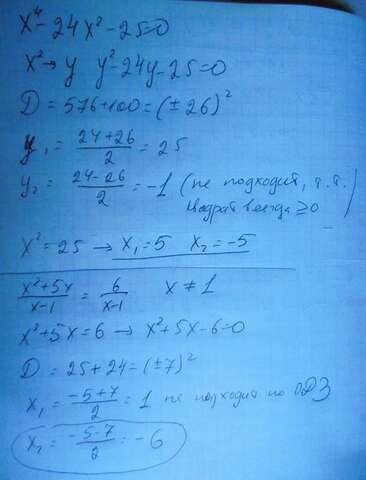 x⁴ - 24x² - 25 = 0
x² → y   y² - 24y - 25 = 0
D = 576 + 100 = (± 26)²
y₁ = (24 + 26)/2 = 25
y₂ = (24 - 26)/2 = -1 (не подходит, т.к.
квадрат всегда ≥ 0)
x² = 25 → x₁ = 5   x₂ = -5
(x² + 5x)/(x - 1) = 6/(x - 1)   x ≠ 1
x² + 5x = 6 → x² + 5x - 6 = 0
D = 25 + 24 = (± 7)²
x₁ = (-5 + 7)/2 = 1 не подходит по ОДЗ
x₂ = (-5 - 7)/2 = -6